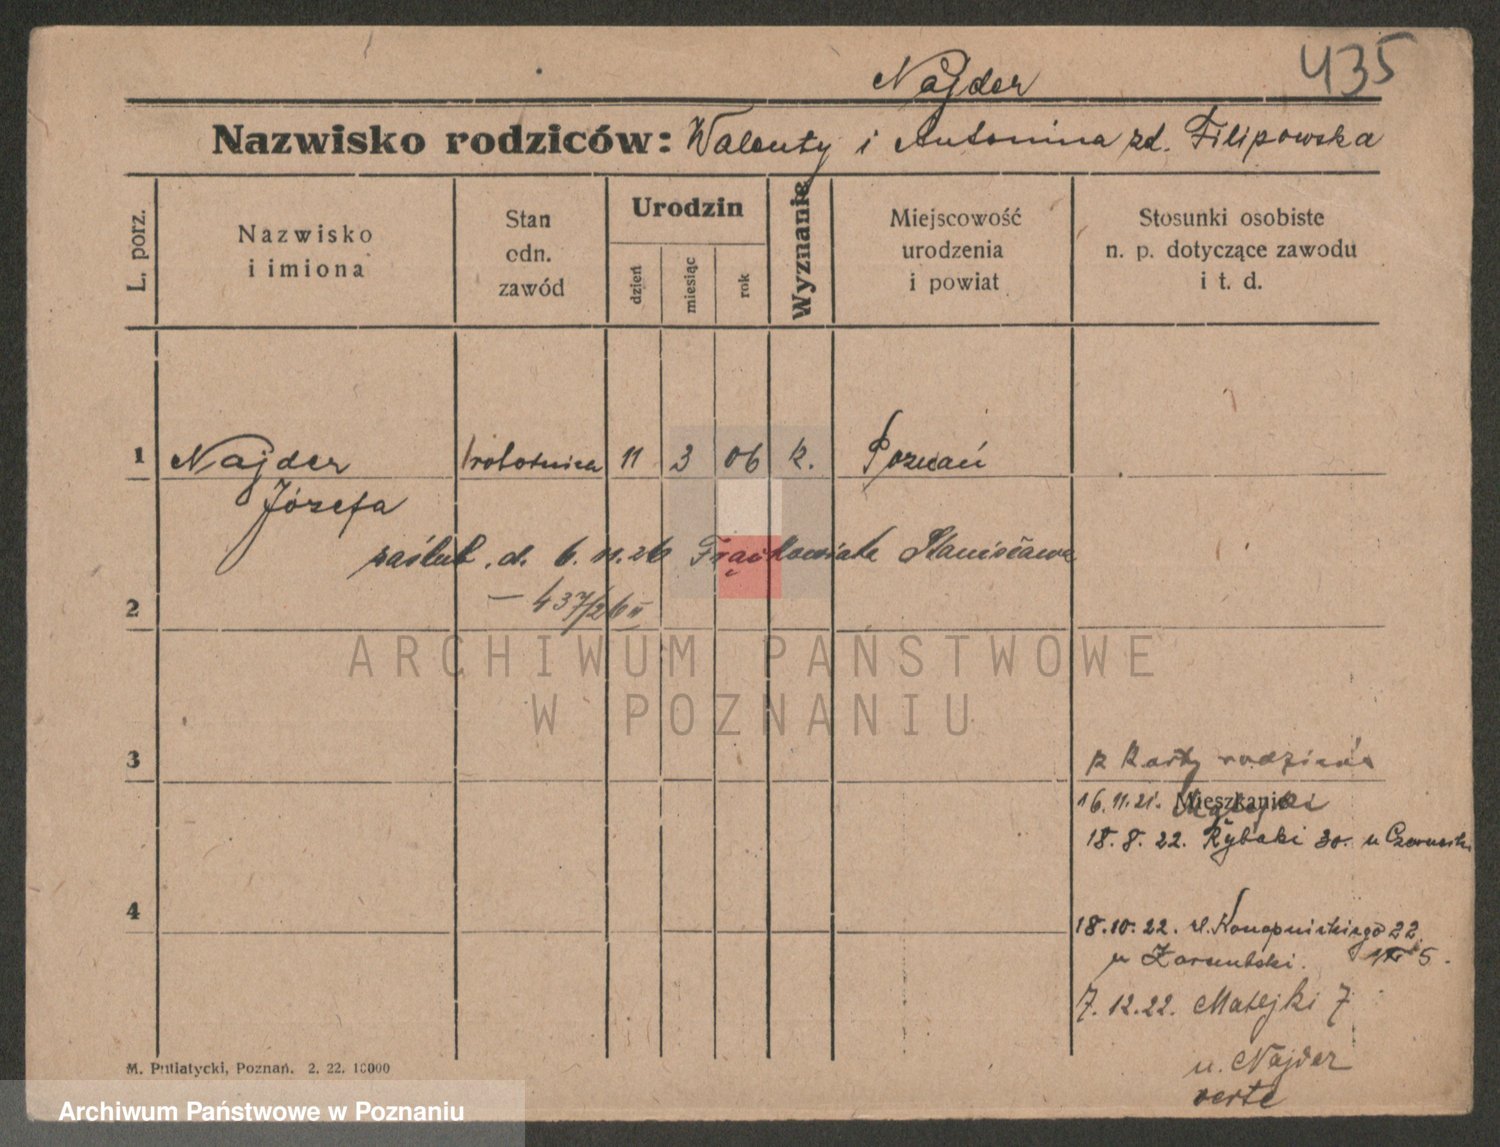 435
Najder
Nazwisko rodziców: Walenty i Antonina zd. Filipowska
L. porz.
Nazwisko i imiona
Stan odn. zawód
Urodzin
dzień
miesiąc
rok
Wyznanie
Miejscowość urodzenia i powiat
Stosunki osobiste n. p. dotyczące zawodu i t. d.
1 Najder robotnica 11 3 06 k. Poznań
Józefa
zaślub. d. 6. 11. 26 Frąckowiaka Stanisława
— 437/26 II
2
ARCHIWUM PAŃSTWOWE
W POZNANIU
3
z karty rodziców
16.11.21. Mieszkanie
18. 8. 22. Rybaki 30. u
4
18.10.22. ul. Konopnickiego 22
u 5.
7. 12. 22. Matejki 7
u. Najder
verte
M. Putiatycki, Poznań. 2. 22. 10000
Archiwum Państwowe w Poznaniu